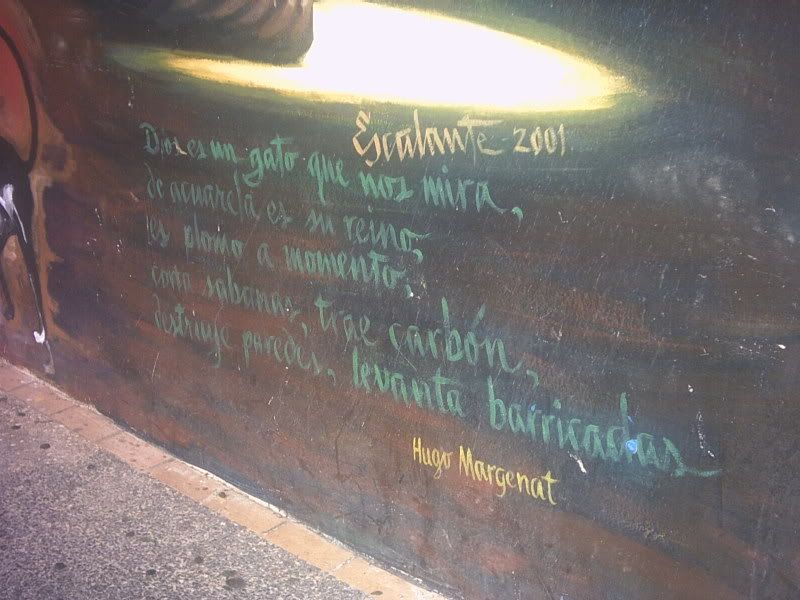 Escalante 2001
Dios es un gato que nos mira,
de acuarela es su reino,
es plomo a momento,
corta sabanas, trae carbón,
destruye paredes, levanta barricadas
Hugo Margenat